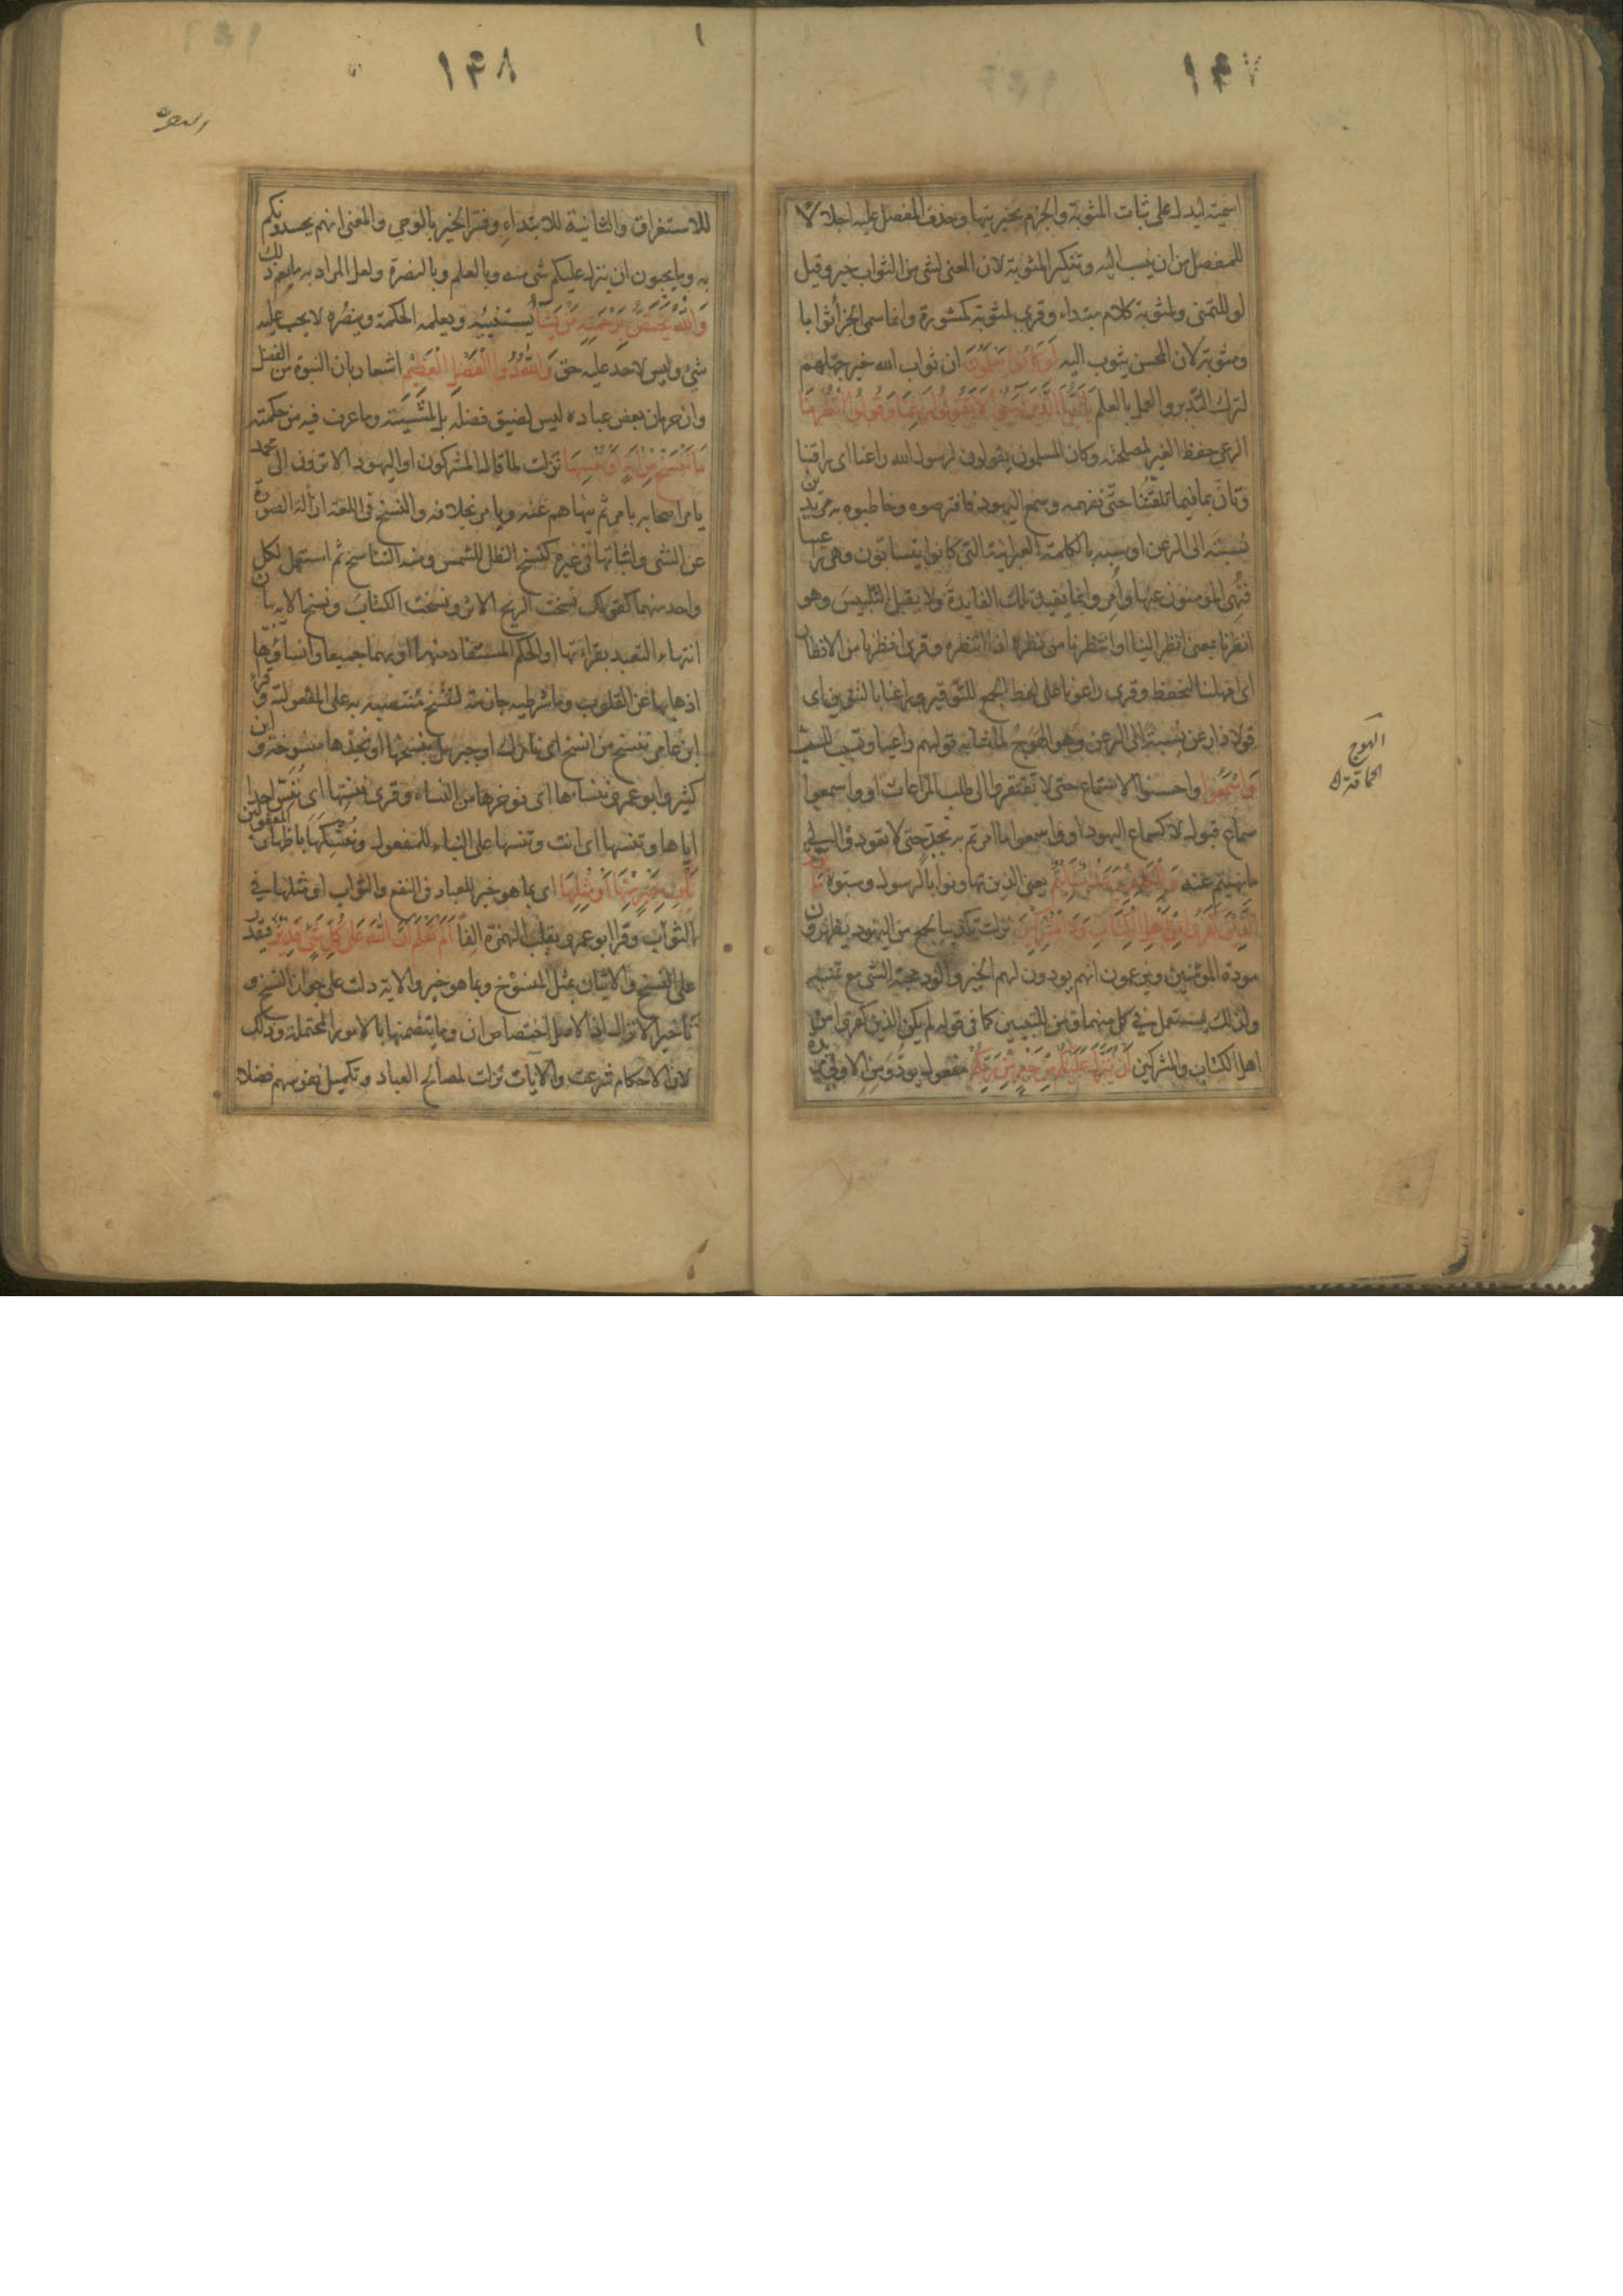 ١٤٧
اسمية ليدل على ثبات المثوبة والجزم بخيريتها وحذف المفضل عليه اجلالا
للمفضل من ان ينسب اليه وتنكير المثوبة لان المعنى لشئ من الثواب خير وقيل
لو للتمنى ولمثوبة كلام مبتداء وقرى لمثوبة كمشورة وانما سمى الجزأ ثوابا
ومثوبة لان المحسن يثوب اليه لَوْ كَانُوا يَعْلَمُونَ ان ثواب الله خير جهلهم
لترك التدبر والعمل بالعلم يَا أَيُّهَا الَّذِينَ آمَنُوا لَا تَقُولُوا رَاعِنَا وَقُولُوا انْظُرْنَا
الرعى حفظ الغير لمصلحته وكان المسلمون يقولون لرسول الله راعنا اى راقبنا
وتأن بنا فيما تلقننا حتى نفهمه وسمع اليهود فافترصوه وخاطبوه به مريدين
نسبته الى الرعن او سبه بالكلمة العبرانية التى كانوا يتسابون وهى راعينا
فنهى المؤمنون عنها وأمروا بما يفيد تلك الفايدة ولا يقبل التلبيس وهو
انظرنا بمعنى انظر الينا او انتظرنا من نظره اذا انتظره وقرى انظرنا من الانظار
اى امهلنا لنحفظ وقرى راعونا على لفظ الجمع للتوقير وراعنا بالتنوين اى
قولا ذا رعن نسبة الى الرعن وهو الهوج لما شابه قولهم راعينا وتسبب للسب
وَاسْمَعُوا واحسنوا الاستماع حتى لا تفتقروا الى طلب المراعات او واسمعوا
سماع قبول لا كسماع اليهود او واسمعوا ما امرتم به بجد حتى لا تعودوا الى
ما نهيتم عنه وَلِلْكَافِرِينَ عَذَابٌ أَلِيمٌ يعنى الذين تهاونوا بالرسول وسبوه مَا يَوَدُّ
الَّذِينَ كَفَرُوا مِنْ أَهْلِ الْكِتَابِ وَلَا الْمُشْرِكِينَ نزلت تكذيبا لجمع من اليهود يظهرون
مودة المؤمنين ويزعمون انهم يودون لهم الخير والود محبة الشئ مع تمنيه
ولذلك يستعمل فى كل منهما ومن للتبيين كما فى قوله لم يكن الذين كفروا من
اهل الكتاب والمشركين أَنْ يُنَزَّلَ عَلَيْكُمْ مِنْ خَيْرٍ مِنْ رَبِّكُمْ مفعول يود ومن الاولى مزيدة
الهوج
الحماقة
١٤٨
البقرة
للاستغراق والثانية للابتداء وفسر الخير بالوحى والمعنى انهم يحسدونكم
به وما يحبون ان ينزل عليكم شئ منه وبالعلم وبالنصرة ولعل المراد به ما يعم ذلك
وَاللَّهُ يَخْتَصُّ بِرَحْمَتِهِ مَنْ يَشَاءُ يستنبئه ويعلمه الحكمة وينصره لا يجب عليه
شئ وليس لاحد عليه حق وَاللَّهُ ذُو الْفَضْلِ الْعَظِيمِ اشعار بان النبوة من الفضل
وان حرمان بعض عباده ليس لضيق فضله بل لمشيته وما عرف فيه من حكمته
مَا نَنْسَخْ مِنْ آيَةٍ أَوْ نُنْسِهَا نزلت لما قال المشركون او اليهود الا ترون الى محمد
يامر اصحابه بامر ثم ينهاهم عنه ويامر بخلافه والنسخ فى اللغة ازالة الصورة
عن الشئ واثباتها فى غيره كنسخ الظل للشمس ومنه التناسخ ثم استعمل لكل
واحد منهما كقولك نسخت الريح الاثر ونسخت الكتاب ونسخ الاية بيان
انتهاء التعبد بقراءتها او الحكم المستفاد منها او بهما جميعا وانساؤها
اذهابها عن القلوب وما شرطية جازمة لننسخ منتصبة به على المفعولية وقرأ
ابن عامر ننسخ من انسخ اى نامرك او جبريل بنسخها او نجدها منسوخة وابن
كثير وابو عمرو ننسأها اى نوخرها من النساء وقرى ننسها اى ننس احدا
اياها وتنسها اى انت وتنسها على البناء للمفعول وننسكها باظهار المفعولين
نَأْتِ بِخَيْرٍ مِنْهَا أَوْ مِثْلِهَا اى بما هو خير للعباد فى النفع والثواب او مثلها فى
الثواب وقرا ابو عمرو بقلب الهمزة الفا أَلَمْ تَعْلَمْ أَنَّ اللَّهَ عَلَى كُلِّ شَيْءٍ قَدِيرٌ فيقدر
على النسخ والاتيان بمثل المنسوخ وبما هو خير والاية دلت على جواز النسخ و
تأخير الانزال اذ الاصل اختصاص ان وما يتضمنها بالامور المحتملة وذلك
لان الاحكام شرعت والآيات نزلت لمصالح العباد وتكميل نفوسهم فضلا